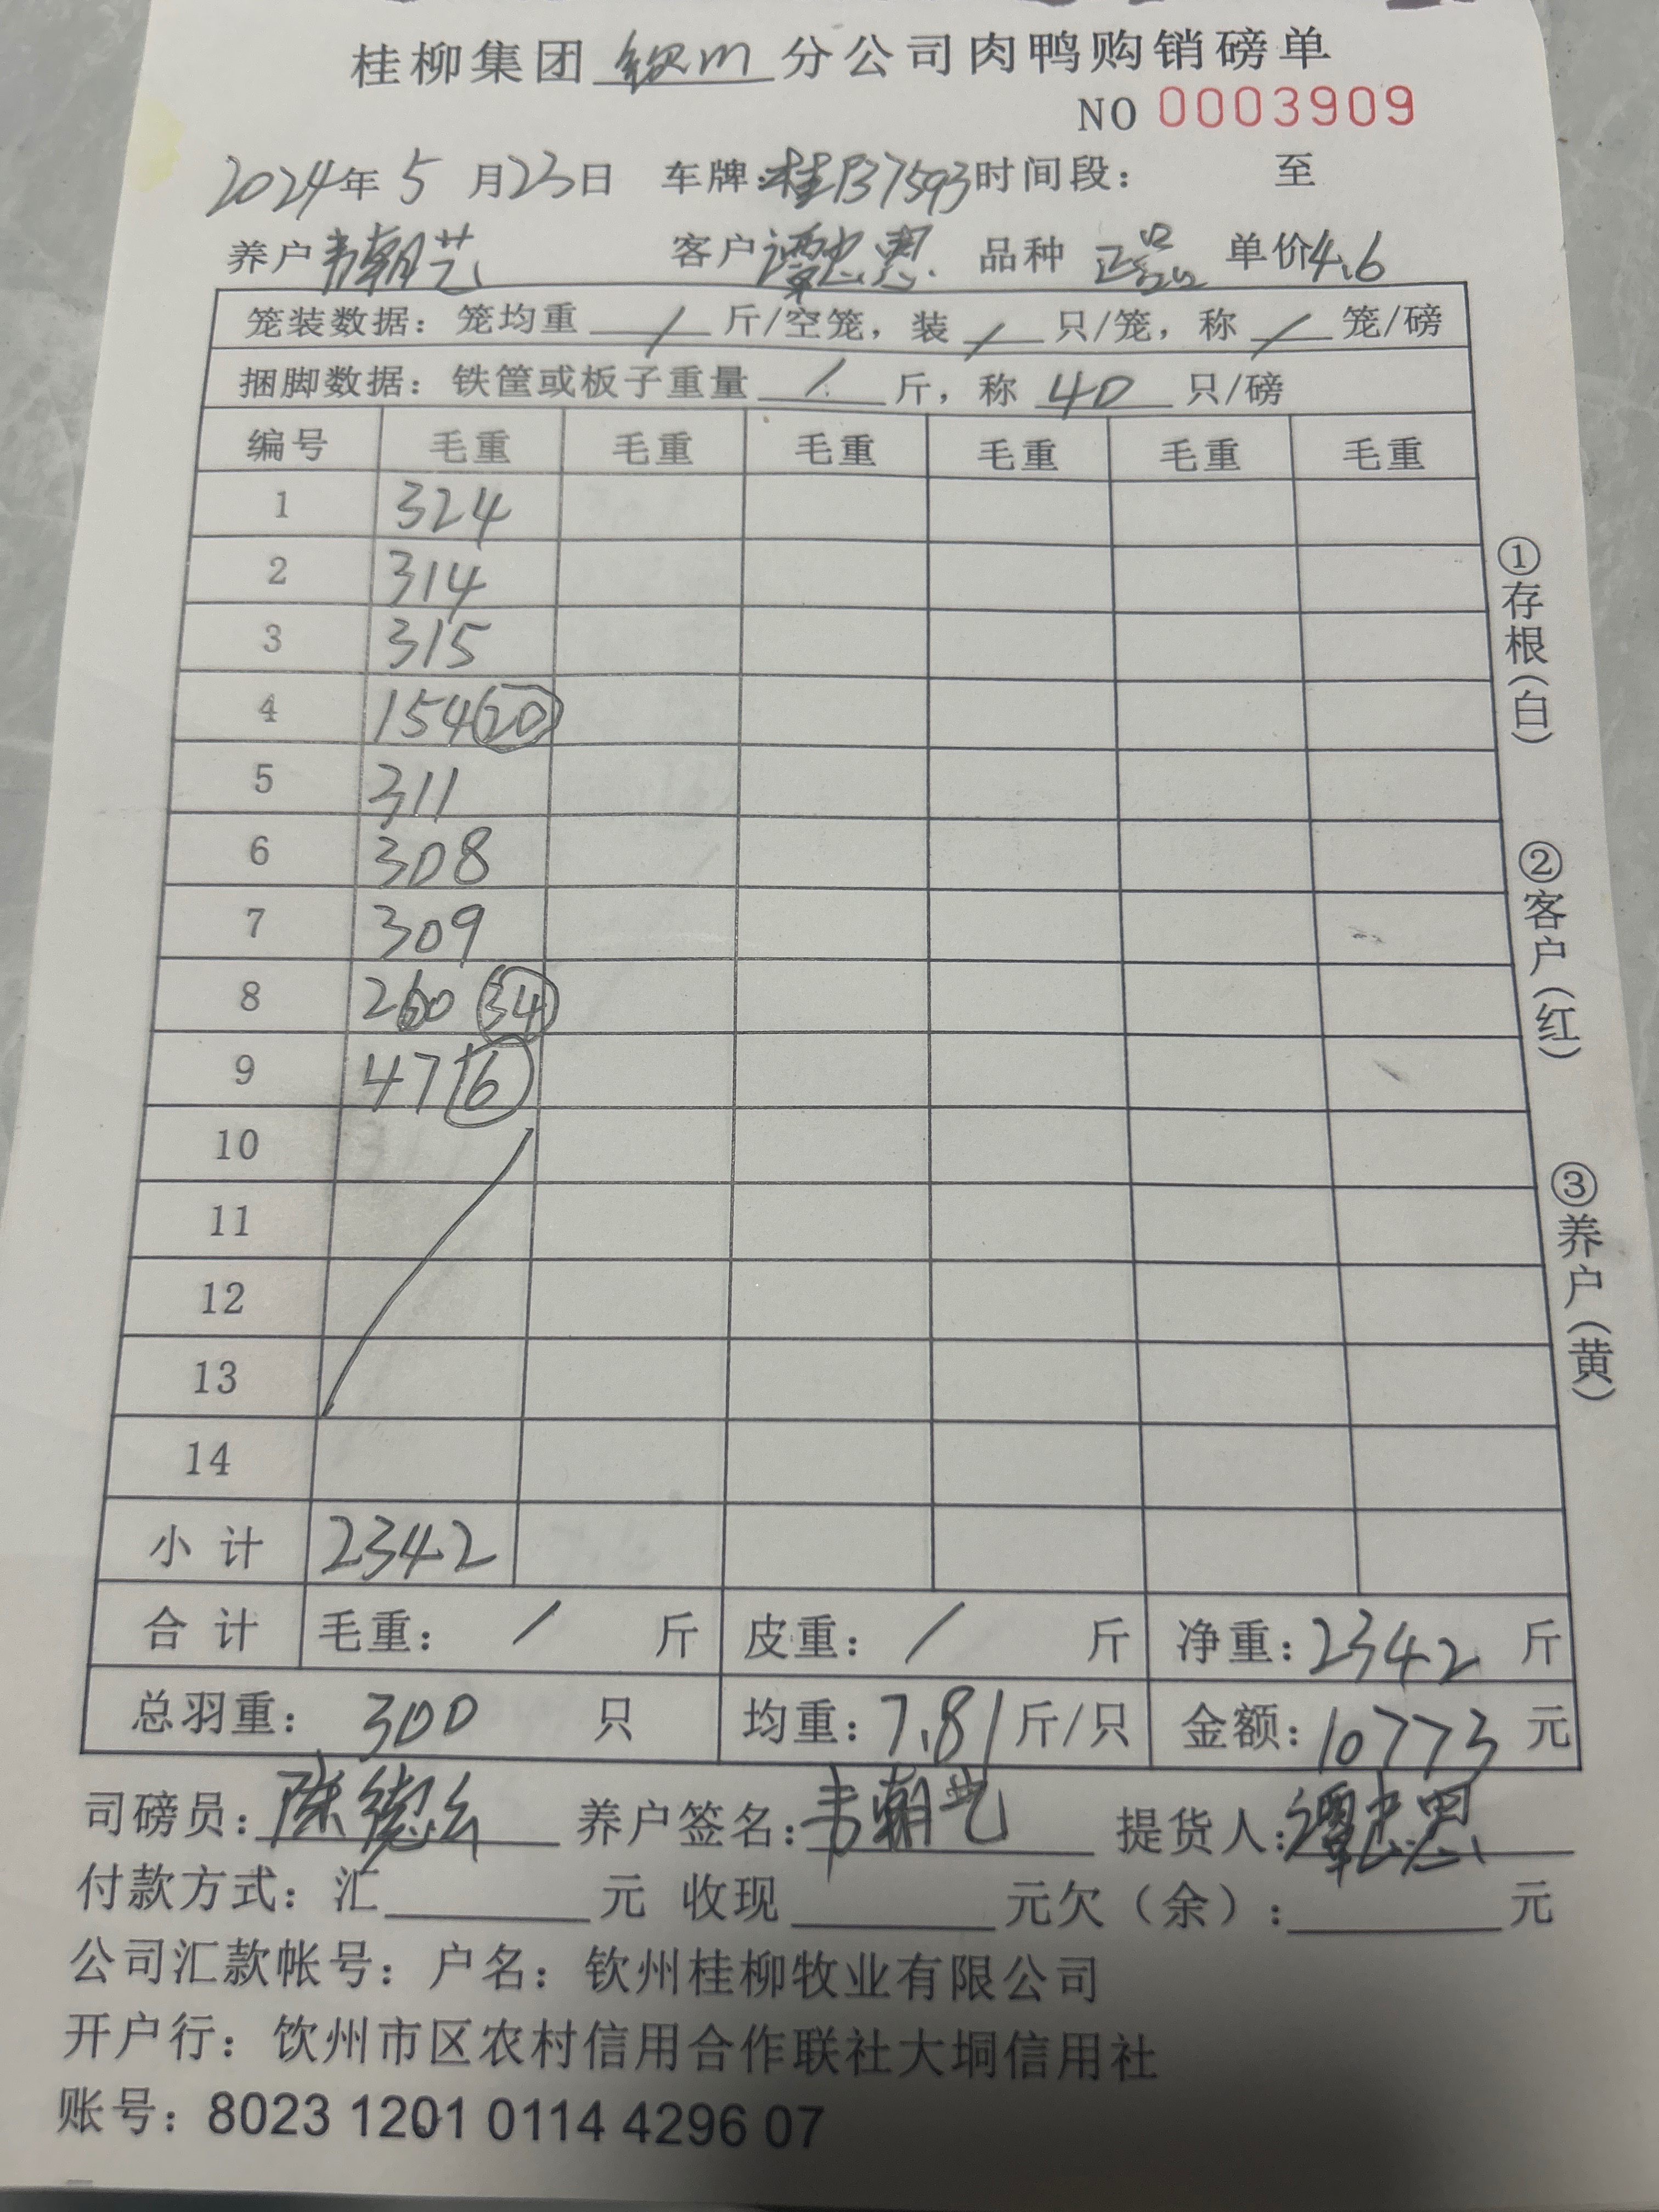 桂柳集团钦州分公司肉鸭购销磅单
NO 0003909
2024年 5 月23日 车牌:桂B37593时间段: 至
养户 韦朝艺 客户 谭忠思 品种 正品 单价4.6
笼装数据:笼均重 / 斤/空笼,装 / 只/笼,称 / 笼/磅
捆脚数据:铁筐或板子重量 / 斤,称 40 只/磅
编号 毛重 毛重 毛重 毛重 毛重 毛重
1 324
2 314
3 315
4 154 20
5 311
6 308
7 309
8 260 34
9 47 16
10
11
12
13
14
小 计 2342
合 计 毛重: / 斤 皮重: / 斤 净重:2342 斤
总羽重: 300 只 均重:7.81斤/只 金额:10773 元
司磅员: 陈 养户签名:韦朝艺 提货人:谭忠思
付款方式:汇 元 收现 元欠(余): 元
公司汇款帐号:户名:钦州桂柳牧业有限公司
开户行:饮州市区农村信用合作联社大垌信用社
账号:8023 1201 0114 4296 07
①存根(白)
②客户(红)
③养户(黄)